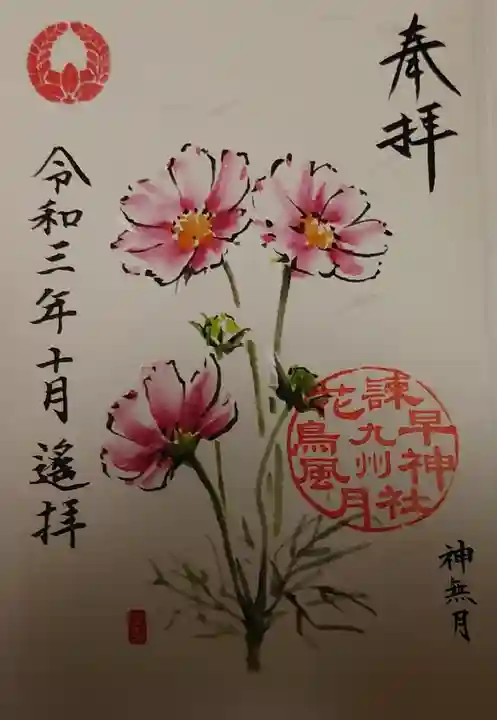 奉拝
諫早神社
九州
花鳥風月
神無月
令和三年十月 遙拝